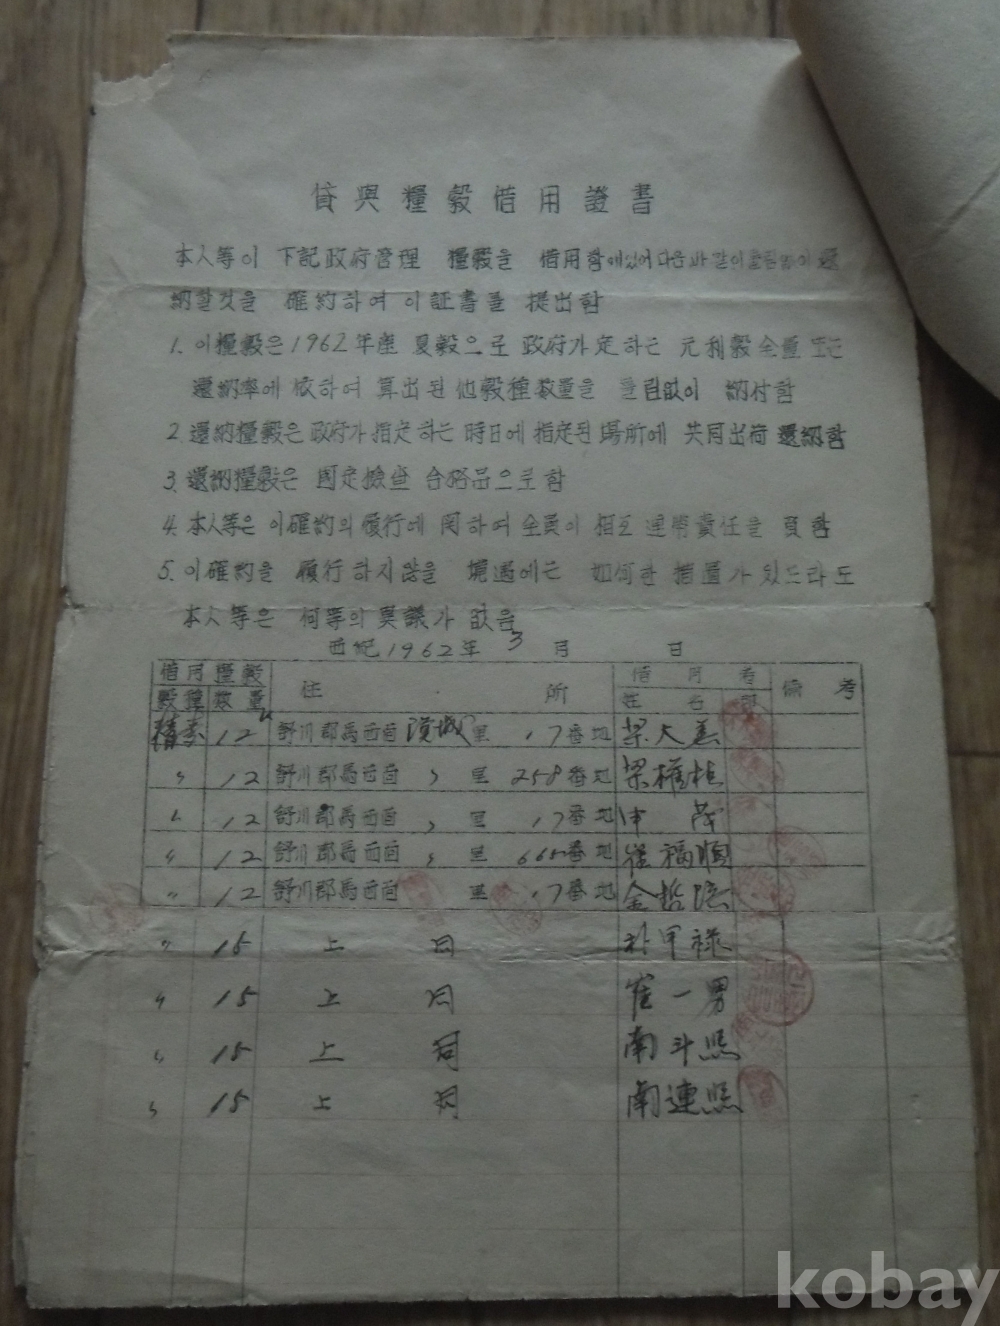 貸與糧穀借用證書
本人等이 下記政府管理 糧穀을 借用함에있어다음과같이틀림없이還
納할것을 確約하여 이証書를 提出함
1. 이糧穀은1962年產 夏穀으로 政府가定하는 元利穀全量또는
還納率에依하여 算出된他穀種数量을 틀림없이 納付함
2. 還納糧穀은政府가指定하는時日에指定된場所에 共同出荷還納함
3. 還納糧穀은 固定檢查 合格品으로함
4. 本人等은 이確約의履行에 関하여 全員이 相互連帶責任을 負함
5. 이確約을 履行하지않을 境遇에는 如何한措置가있드라도
本人等은 何等의異議가 없음
西紀1962年 3月 日
借用糧穀 住 所 借用者 備考
穀種 数量 姓名 印
12 舒川郡馬西面 里 17番地 梁大
〃 12 舒川郡馬西面 〃 里 258番地 梁權
〃 12 舒川郡馬西面 〃 里 17番地 申
〃 12 舒川郡馬西面 〃 里 665番地 崔福順
〃 12 舒川郡馬西面 里 17番地 金哲
〃 15 上 同 朴甲祿
〃 15 上 同 崔一男
〃 15 上 同 南斗熙
〃 15 上 同 南連熙
kobay